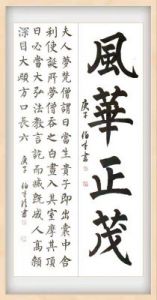 風華正茂
庚子 伯年書
夫人夢梵僧謂曰當生貴子即出囊中舍
利使吞所夢僧白晝入其室摩其頂
曰必當大弘法教言訖而滅既成人高顙
深目大頤方口長六
庚子 伯年書